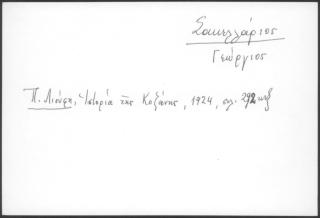 Σακελλάριος
Γεώργιος
Π. Λιούφη, Ἱστορία τῆς Κοζάνης, 1924, σελ. 292 κεξ